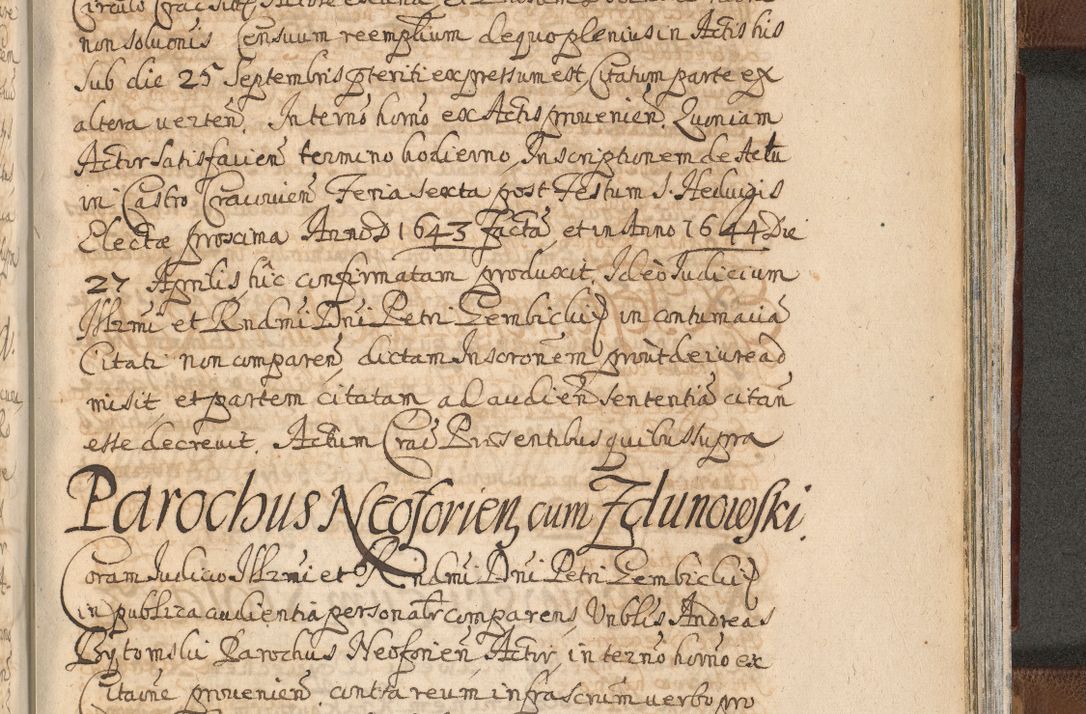 non solutionis Censuum reemptium de quo plenius in Actis his
sub die 25 Septembris pteriti expressum est, Citatum parte ex
altera uerten̄. In termō horno ex Actis prouenien̄. Quoniam
Actor satisfacien̄ termino hodierno, Inscriptionem de Actu
in Castro Cracouien̄ Feria sexta post Festum S. Heduigis
Electæ proxima Anno D 1643 Facta, et in Anno 1644 Die
27 Aprilis hîc confirmatam produxit, Ideò Judicium
Illrmi et Rndmi Dni Petri Gembicki in contumacia
Citati non comparen̄, dictam Inscronem prout de iure ad
misit, et partem citatam ad audien̄ sententiā citan̄
esse decreuit. Actum Crac Presentibus quibus supra
Parochus Neoforien, cum Zdunowski.
Coram Judicio Illrmi et Rndmi Dni Petri Gembicki
in publica audientia personalr comparens, Vnblis Andreas
Bytomski Parochus Neoforien̄ Actor, in termō horno ex
Citaōne prouenien̄. contra reum infrascrum uerbo pro